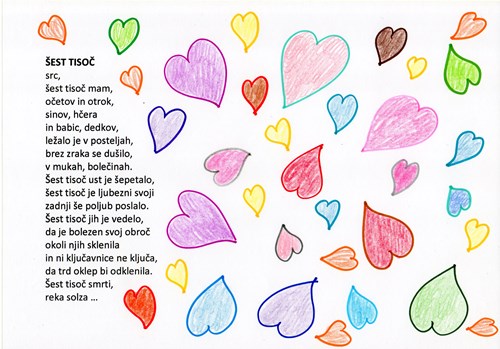 ŠEST TISOČ
src,
šest tisoč mam,
očetov in otrok,
sinov, hčera
in babic, dedkov,
ležalo je v posteljah,
brez zraka se dušilo,
v mukah, bolečinah.
Šest tisoč ust je šepetalo,
šest tisoč je ljubezni svoji
zadnji še poljub poslalo.
Šest tisoč jih je vedelo,
da je bolezen svoj obroč
okoli njih sklenila
in ni ključavnice ne ključa,
da trd oklep bi odklenila.
Šest tisoč smrti,
reka solza ...